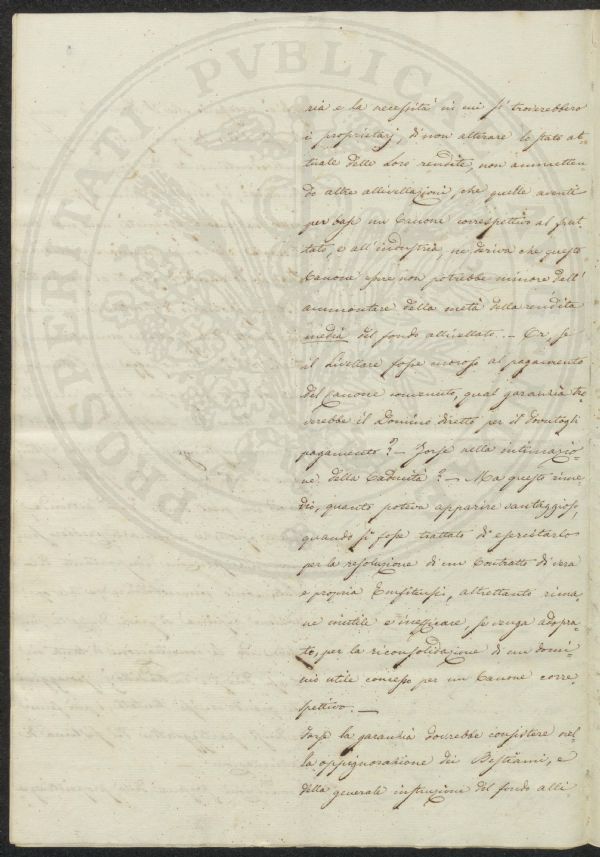 ria e la necessità in cui si troverebbero
i proprietarj, di non alterare lo stato at=
tuale delle Loro rendite, non ammetten=
do altre allivellazioni, che quelle aventi
per base un Canone correspettivo al frut=
tato, e all'industria, ne deriva che questo
Canone esser non potrebbe minore dell'
ammontare della metà della rendita
media del fondo allivellato. — Or, se
il Livellare fosse moroso al pagamento
del Canone convenuto, qual garanzia tro=
verebbe il Domino diretto per il dovutogli
pagamento? — Forse nella intimazio=
ne della Caducità? — Ma questo rime=
dio, quanto poteva apparire vantaggioso,
quando si fosse trattato di
per la resoluzione di un Contratto di vera
e propria Enfiteusi, altrettanto rima=
ne inutile e inefficace, se venga adopra=
to, per la riconsolidazione di un domi=
nio utile concesso per un Canone corre=
spettivo. —
Forse la garanzia dovrebbe consistere nel=
la oppignorazione dei Bestiami, e
della generale instruzione del fondo alli=
PROSPERITATI PVBLICAE